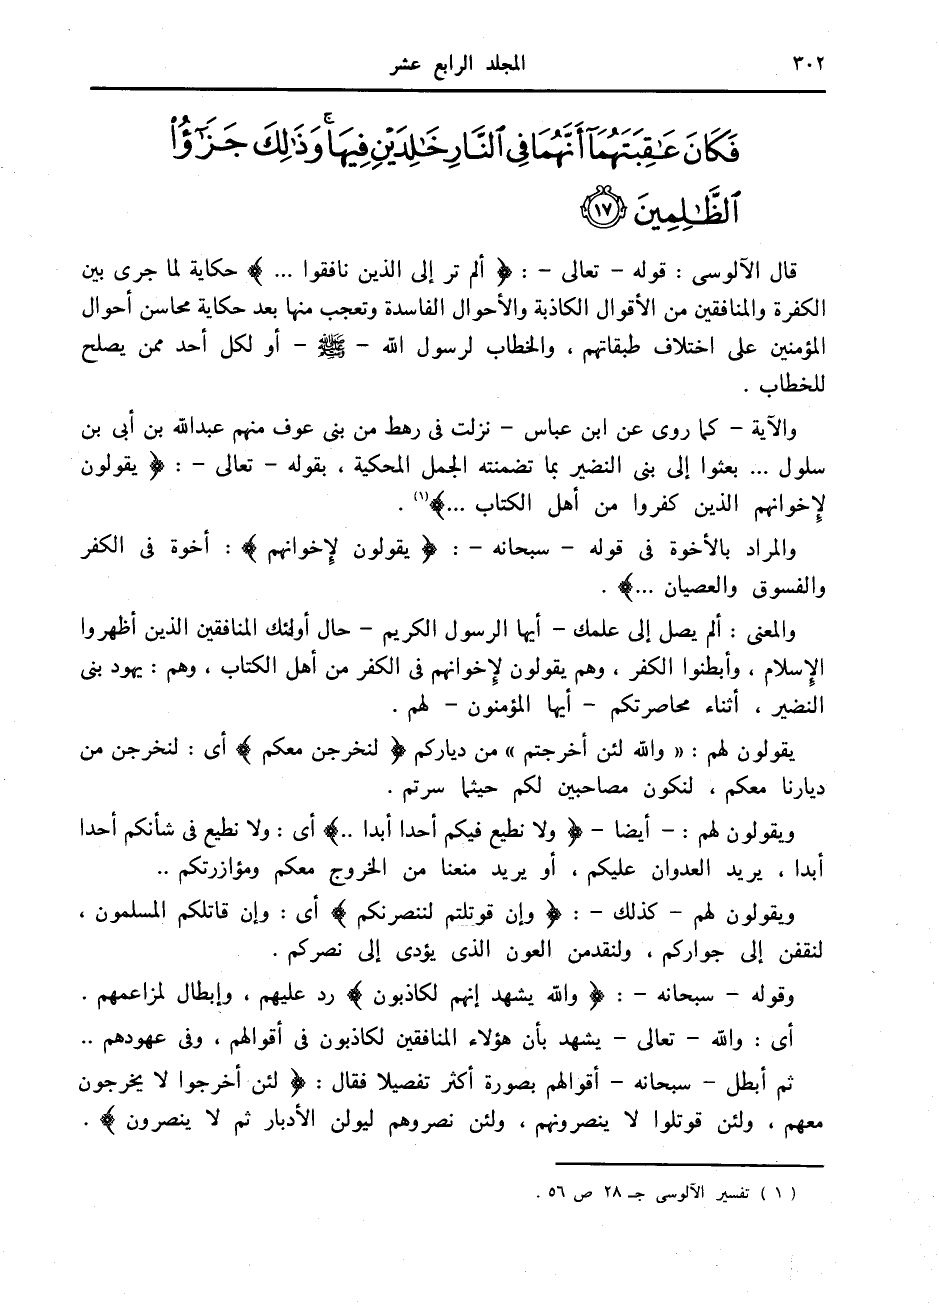 ٣٠٢ المجلد الرابع عشر
فَكَانَ عَـٰقِبَتَهُمَآ أَنَّهُمَا فِى ٱلنَّارِ خَـٰلِدَيْنِ فِيهَا ۚ وَذَٰلِكَ جَزَـٰٓؤُا۟
ٱلظَّـٰلِمِينَ ١٧
قال الآلوسى : قوله - تعالى - : ﴿ ألم تر إلى الذين نافقوا ... ﴾ حكاية لما جرى بين
الكفرة والمنافقين من الأقوال الكاذبة والأحوال الفاسدة وتعجب منها بعد حكاية محاسن أحوال
المؤمنين على اختلاف طبقاتهم ، والخطاب لرسول الله - ﷺ - أو لكل أحد ممن يصلح
للخطاب .
والآية - كما روى عن ابن عباس - نزلت فى رهط من بنى عوف منهم عبدالله بن أبى بن
سلول ... بعثوا إلى بنى النضير بما تضمنته الجمل المحكية ، بقوله - تعالى - : ﴿ يقولون
لإخوانهم الذين كفروا من أهل الكتاب ...﴾(١) .
والمراد بالأخوة فى قوله - سبحانه - : ﴿ يقولون لإخوانهم ﴾ : أخوة فى الكفر
والفسوق والعصيان ...﴾ .
والمعنى : ألم يصل إلى علمك - أيها الرسول الكريم - حال أولئك المنافقين الذين أظهروا
الإسلام ، وأبطنوا الكفر ، وهم يقولون لإخوانهم فى الكفر من أهل الكتاب ، وهم : يهود بنى
النضير ، أثناء محاصرتكم - أيها المؤمنون - لهم .
يقولون لهم : « والله لئن أخرجتم » من دياركم ﴿ لنخرجن معكم ﴾ أى : لنخرجن من
ديارنا معكم ، لنكون مصاحبين لكم حيثما سرتم .
ويقولون لهم : - أيضا - ﴿ ولا نطيع فيكم أحدا أبدا ..﴾ أى : ولا نطيع فى شأنكم أحدا
أبدا ، يريد العدوان عليكم ، أو يريد منعنا من الخروج معكم ومؤازرتكم ..
ويقولون لهم - كذلك - : ﴿ وإن قوتلتم لننصرنكم ﴾ أى : وإن قاتلكم المسلمون ،
لنقفن إلى جواركم ، ولنقدمن العون الذى يؤدى إلى نصركم .
وقوله - سبحانه - : ﴿ والله يشهد إنهم لكاذبون ﴾ رد عليهم ، وإبطال لمزاعمهم .
أى : والله - تعالى - يشهد بأن هؤلاء المنافقين لكاذبون فى أقوالهم ، وفى عهودهم ..
ثم أبطل - سبحانه - أقوالهم بصورة أكثر تفصيلا فقال : ﴿ لئن أخرجوا لا يخرجون
معهم ، ولئن قوتلوا لا ينصرونهم ، ولئن نصروهم ليولن الأدبار ثم لا ينصرون ﴾ .
( ١ ) تفسير الآلوسى جـ ٢٨ ص ٥٦ .